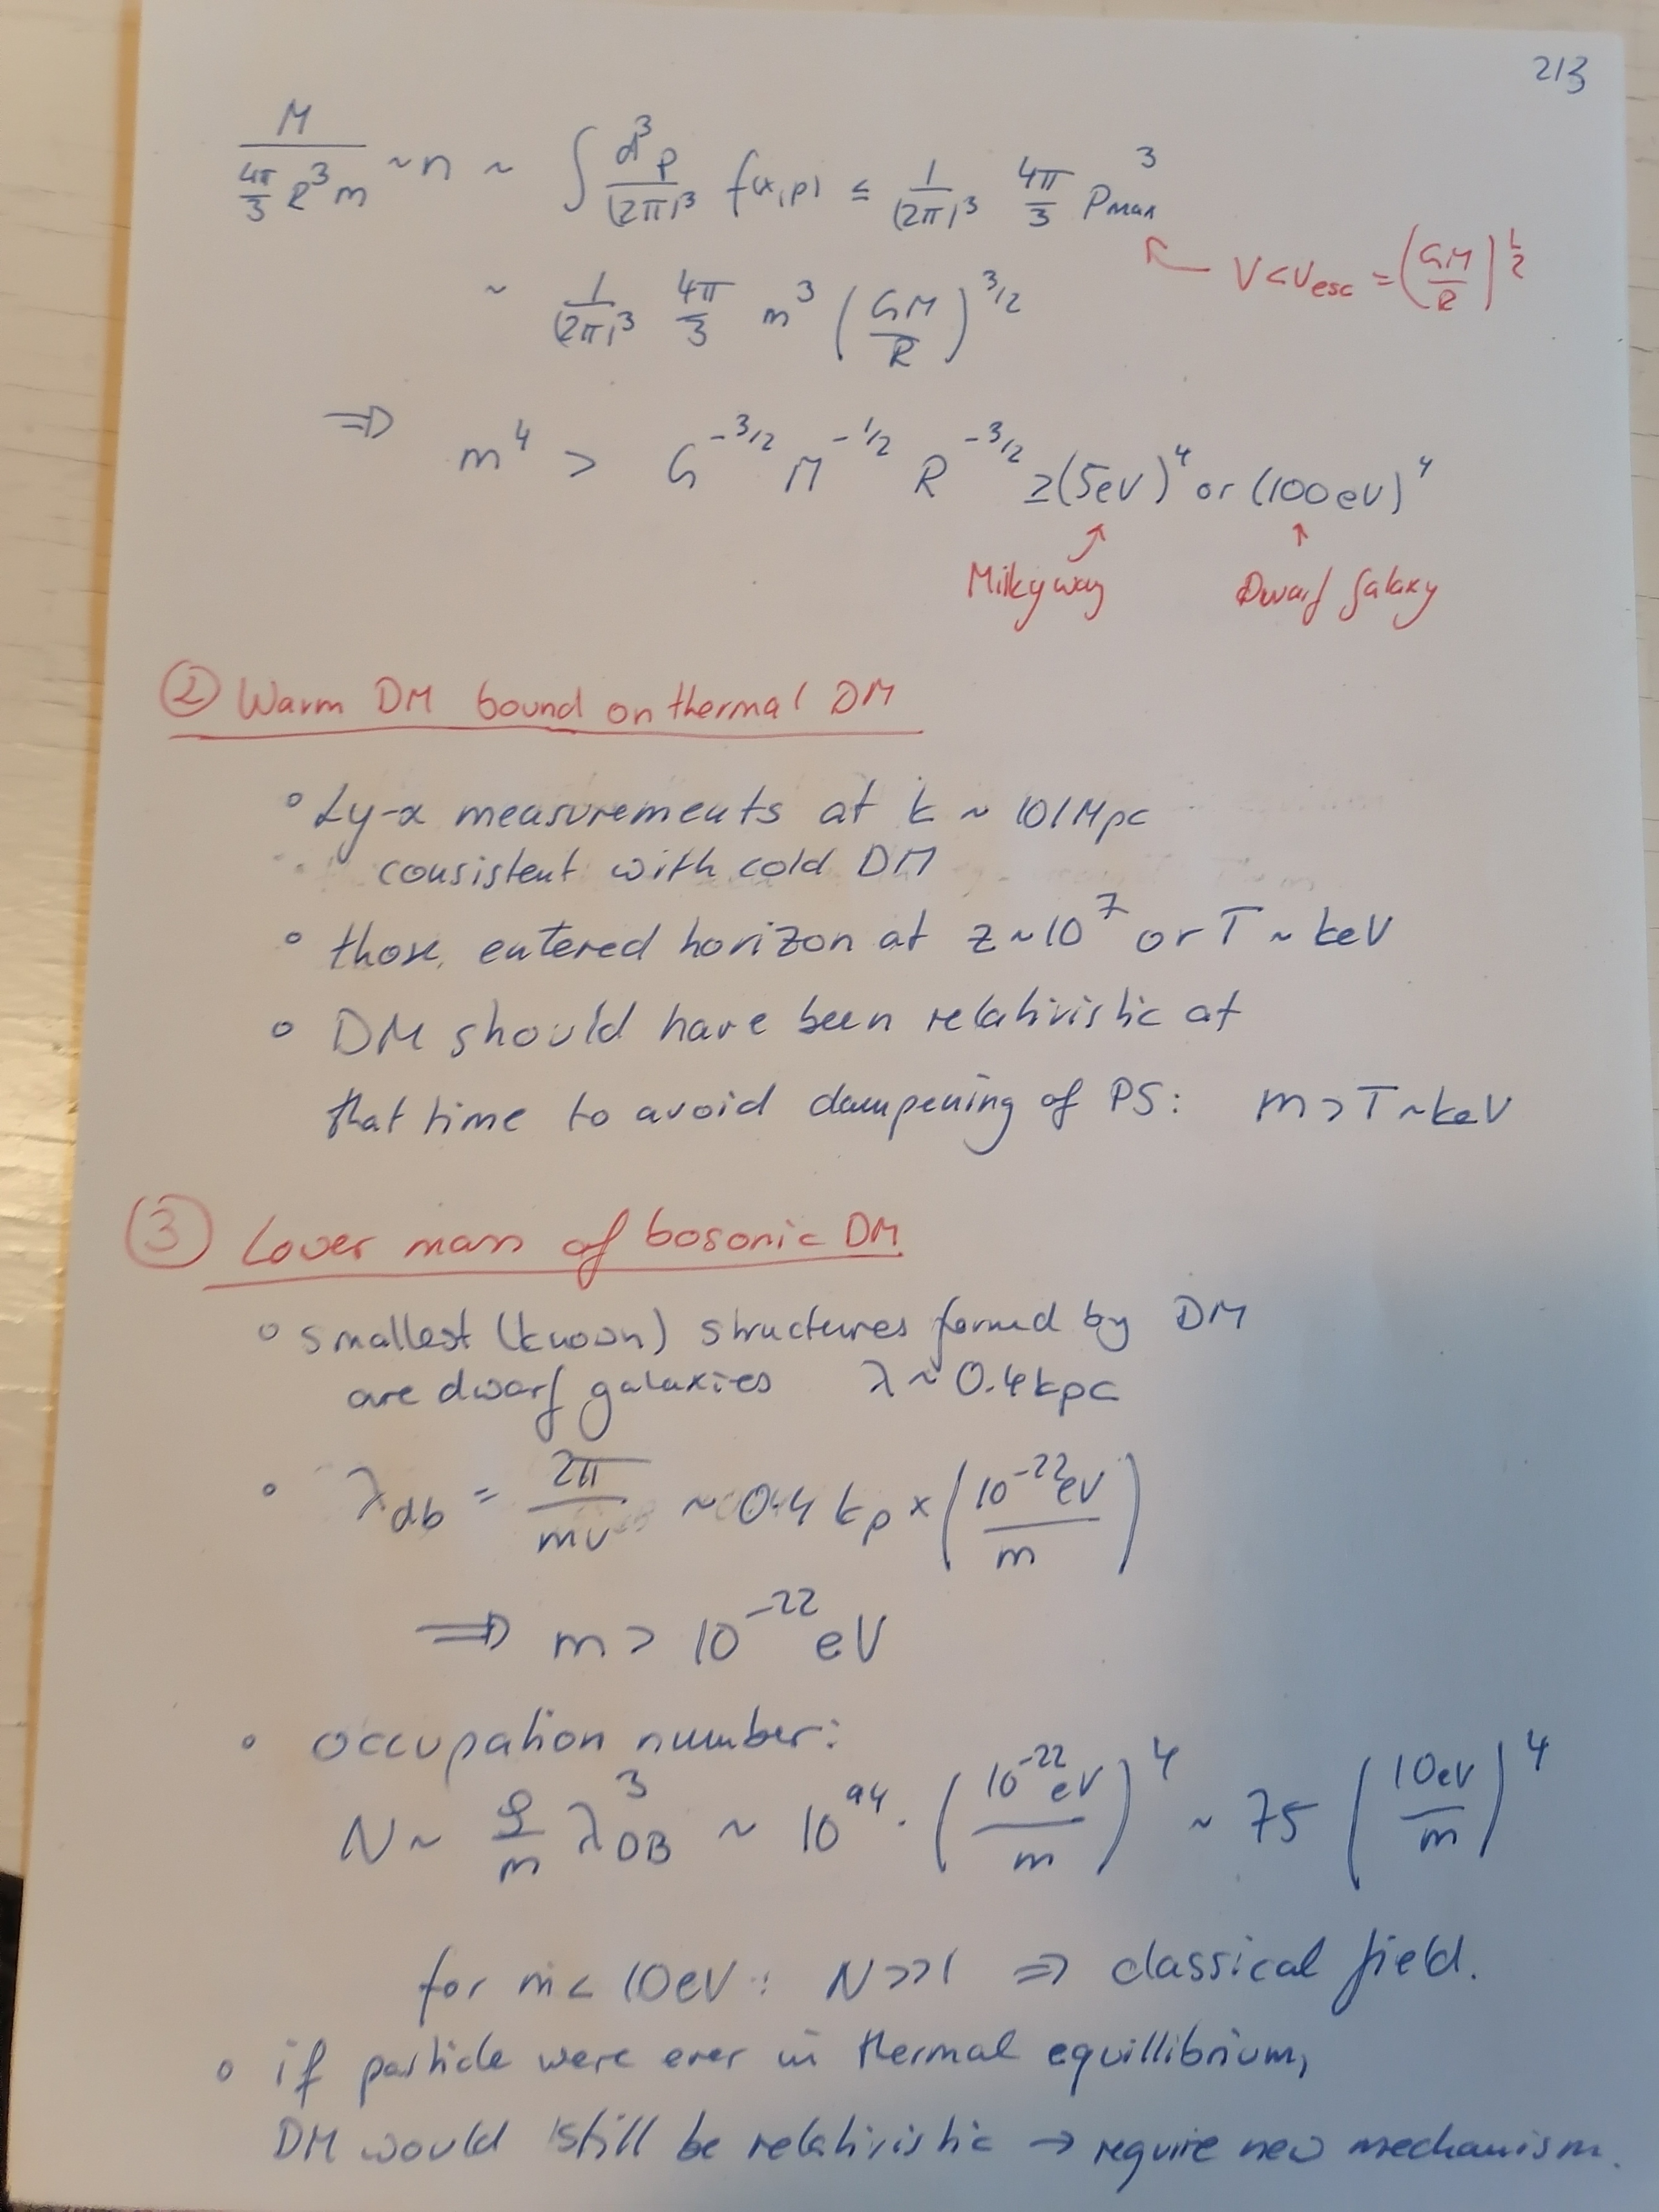 213
M / (4π/3 R³ m) ~ n ~ ∫ d³p/(2π)³ f(x,p) ≤ 1/(2π)³ 4π/3 Pmax³
V < Vesc = (GM/R)^(1/2)
~ 1/(2π)³ 4π/3 m³ (GM/R)^(3/2)
⇒ m⁴ > G^(-3/2) M^(-1/2) R^(-3/2) ≥ (5eV)⁴ or (100eV)⁴
Milkyway Dwarf Galaxy
② Warm DM bound on thermal DM
∘ Ly-α measurements at k ~ 10/Mpc
consistent with cold DM
∘ those entered horizon at z ~ 10⁷ or T ~ keV
∘ DM should have been relativistic at
that time to avoid dampening of PS: m > T ~ keV
③ Lower mass of bosonic DM
∘ smallest (known) structures formed by DM
are dwarf galaxies λ ~ 0.4 kpc
∘ λdb = 2π/mv ~ 0.4 kp × (10⁻²² eV / m)
⇒ m > 10⁻²² eV
∘ occupation number:
N ~ ρ/m λ³DB ~ 10⁹⁴ · (10⁻²² eV / m)⁴ ~ 75 (10eV / m)⁴
for m < 10eV: N >> 1 ⇒ classical field.
∘ if particle were ever in thermal equillibrium,
DM would still be relativistic → require new mechanism.